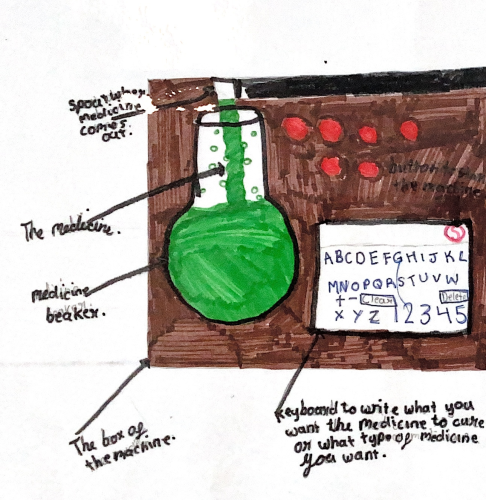 Spout where
medicine
comes
out.
button to
the machine
The medecine.
ABCDEFGHIJKL
MNOPQRSTUVW
+- Clear Delete
XYZ 12345
medicine
beaker.
The box of
the machine.
Keyboard to write what you
want the medicine to cure
or what type of medicine
you want.